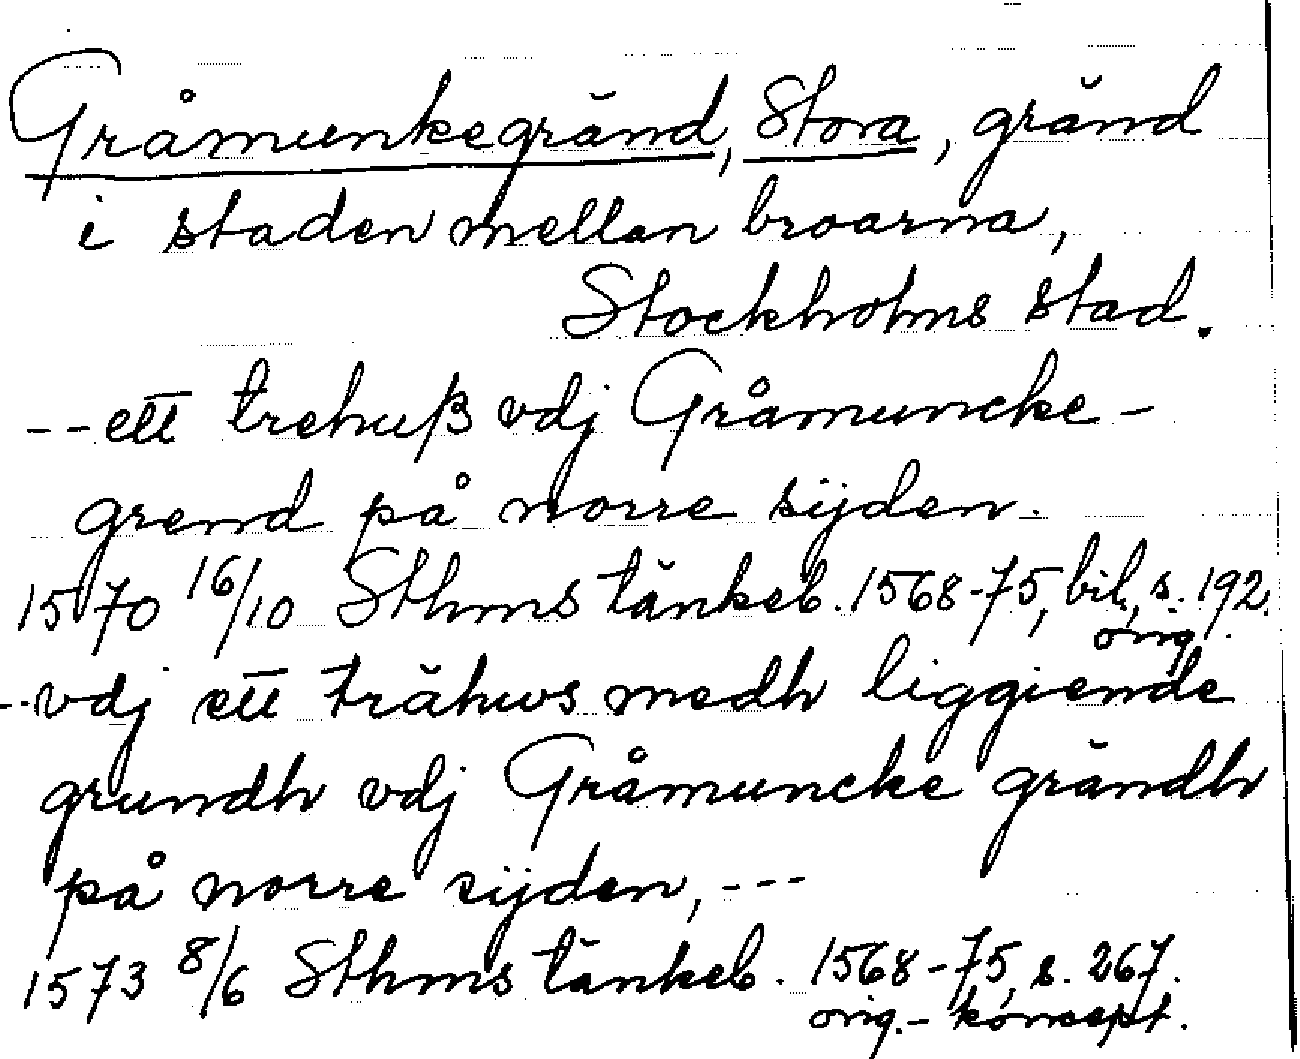 Gråmunkegränd, Stora, gränd
i staden mellan broarna,
Stockholms stad.
-- ett trehuß vdj Gråmuncke-
grend på norre sijden.
1570 16/10 Sthms tänkeb. 1568-75, bil, s. 192.
orig.
-- vdj ett trähws medh liggiende
grundh vdj Gråmuncke grändh
på norre sijden, ---
1573 8/6 Sthms tänkeb. 1568-75, s. 267.
orig.-koncept.